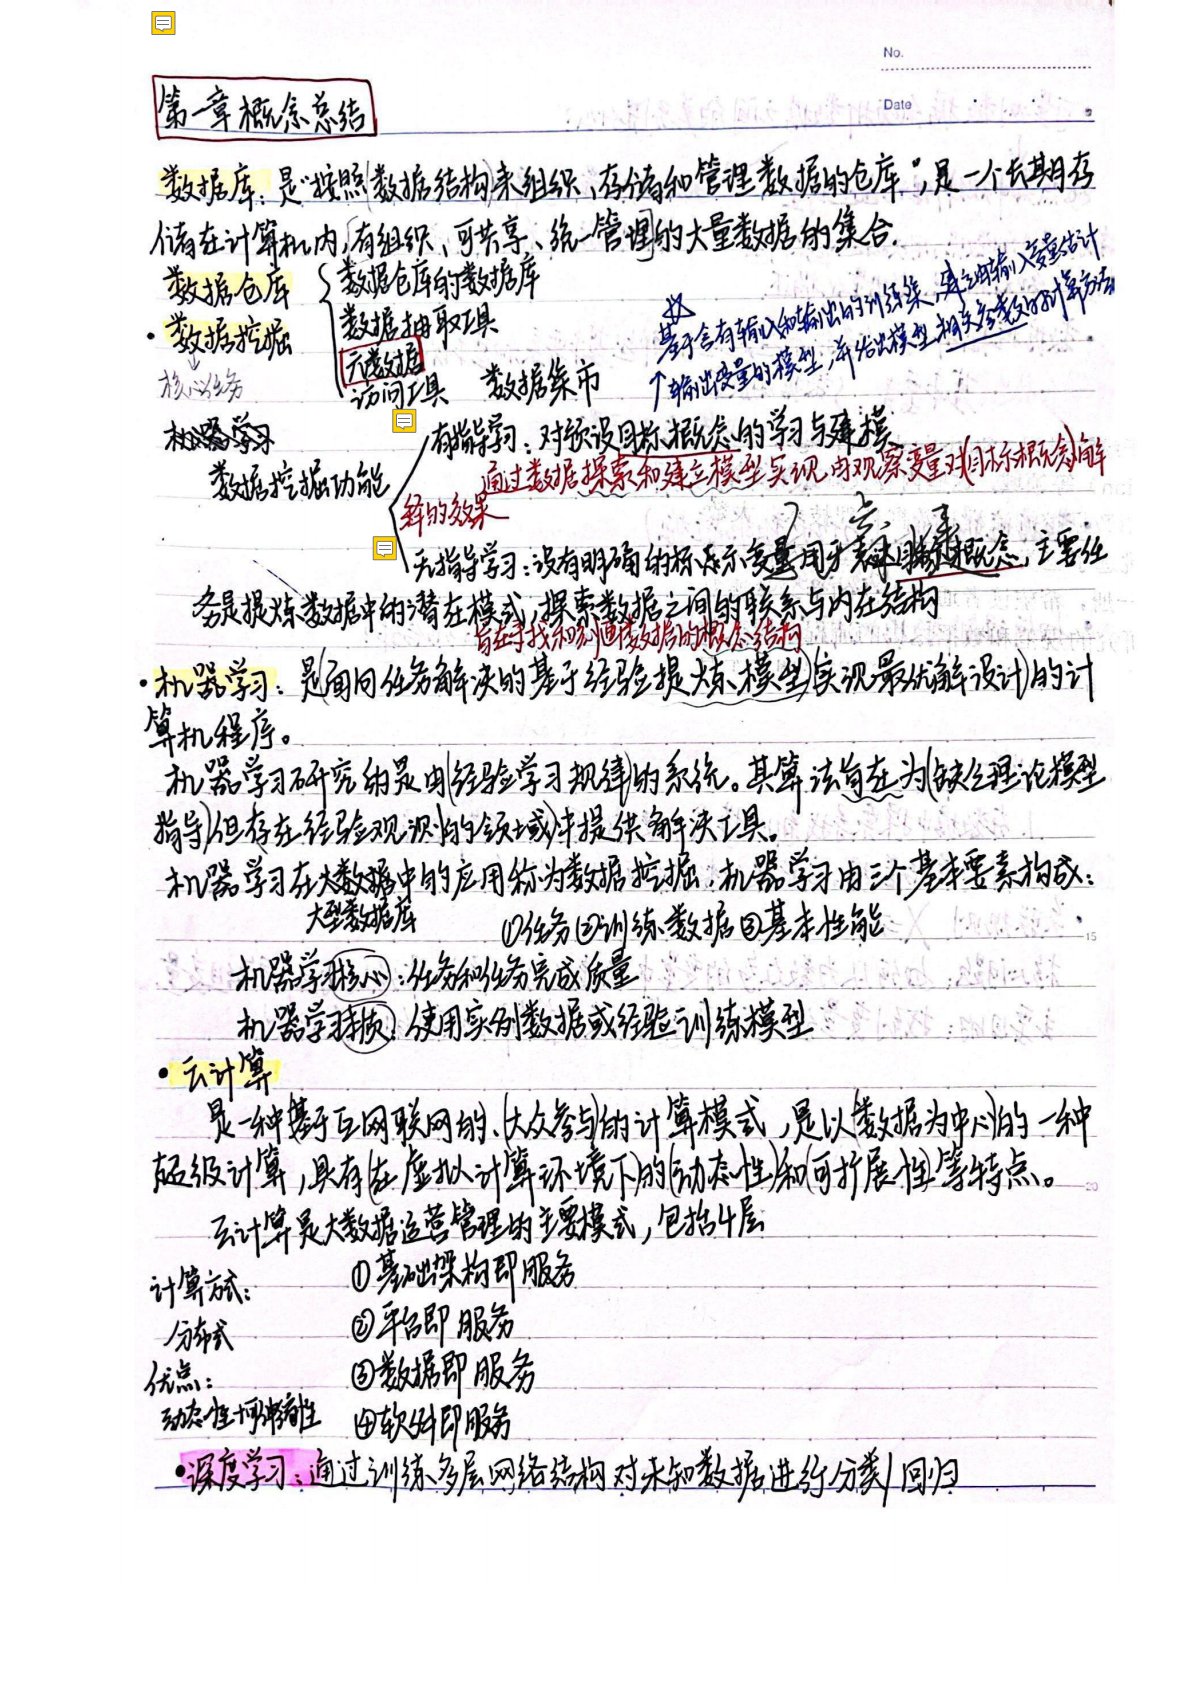 No.
Date
第一章概念总结
数据库：是"按照(数据结构)来组织、存储和管理数据的仓库"，是一个长期存
储在计算机内,有组织、可共享、统一管理的大量数据的集合.
数据仓库
数据仓库的数据库
数据抽取工具
元数据
访问工具 数据集市
基于含有输入和输出的训练集，建立由输入变量估计
输出变量的模型，并给出模型相关参数的计算方法
• 数据挖掘
核心任务
机器学习
数据挖掘功能
有指导学习：对预设目标概念的学习与建模
通过数据探索和建立模型实现由观察变量对(目标概念)解
释的效果
无指导学习：没有明确的标示变量用于表达目标概念，主要任
务是提炼数据中的潜在模式，探索数据之间的联系与内在结构
旨在寻找和刻画数据的概念结构
• 机器学习：是(面向任务解决的基于经验提炼模型)实现最优解设计)的计
算机程序。
机器学习研究的是由(经验学习规律)的系统。其算法旨在为(缺乏理论模型
指导)但存在经验观测)的领域)中提供解决工具。
机器学习在大数据中的应用称为数据挖掘，机器学习由三个基本要素构成：
大型数据库
①任务②训练数据③基本性能
机器学习核心：任务和任务完成质量
机器学习本质：使用实例数据或经验训练模型
• 云计算
是一种(基于互网联网的、(大众参与)的计算模式，是以(数据为中心)的一种
超级计算，具有(在虚拟计算环境下)的(动态性)和(可扩展性)等特点。
云计算是大数据运营管理的主要模式，包括4层
计算方式：
分布式
优点：
动态性 可伸缩性
①基础架构即服务
②平台即服务
③数据即服务
④软件即服务
• 深度学习：通过训练多层网络结构对未知数据进行分类/回归
15
20